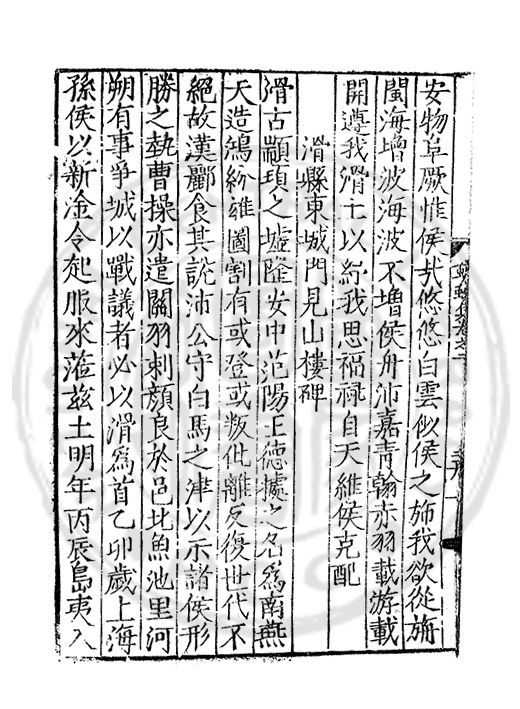 安物阜厥惟侯㢤悠悠白雲似侯之斾我欲從旃
閩海增波海波不增侯舟沛嘉青翰赤羽載游載
開遵我滑士以綏我思福祿自天維侯克配
滑縣東城門見山樓碑
滑古顓頊之墟隆安中范陽王德據之名爲南燕
天造鴻紛雜圖割有或登或叛仳離反復世代不
絕故漢酈食其說沛公守白馬之津以示諸侯形
勝之埶曹操亦遣關羽刺顏良於邑北魚池里河
朔有事爭城以戰議者必以滑爲首乙卯歲上海
孫侯以新淦令起服來蒞兹土明年丙辰島夷入
蠛蠓集卷之二